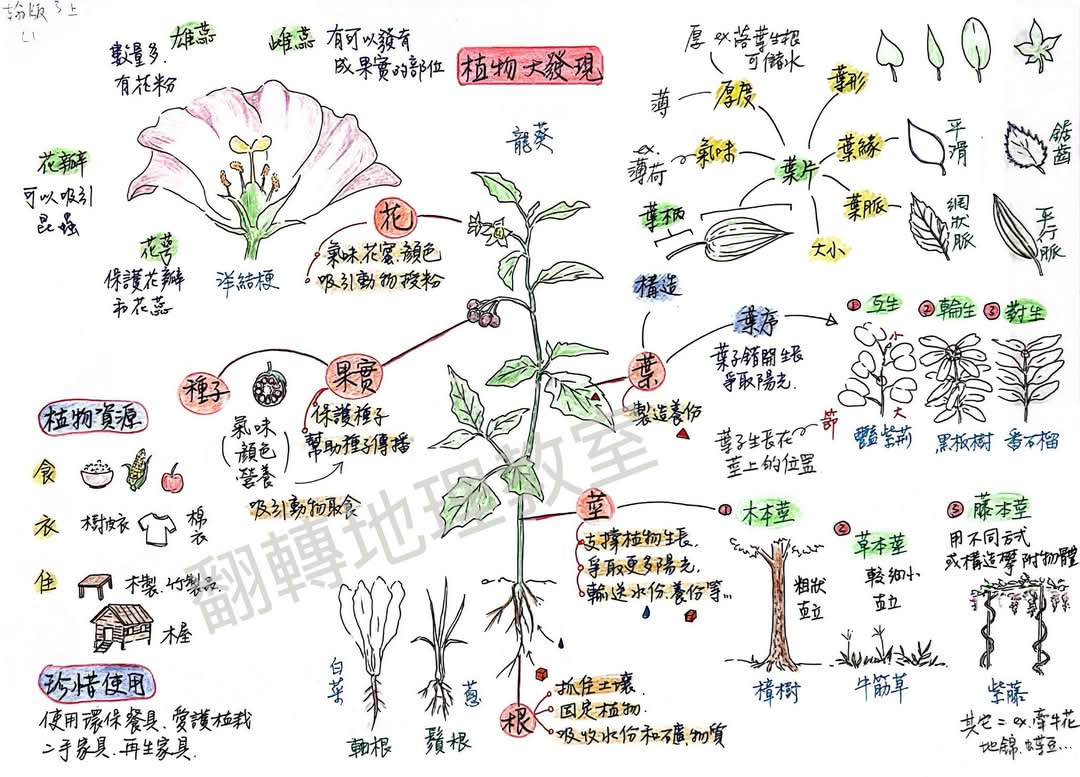 翰版 3上
L1
植物大發現
龍葵
雄蕊
數量多.
有花粉
雌蕊
有可以發育
成果實的部位
花瓣
可以吸引
昆蟲
花萼
保護花瓣
和花蕊
洋結梗
花
氣味.花蜜.顏色
吸引動物授粉
果實
保護種子
幫助種子傳播
種子
氣味
顏色
營養
吸引動物取食
植物資源
食
衣
樹皮衣
棉衣
住
木製.竹製品
木屋
珍惜使用
使用環保餐具.愛護植栽
二手家具.再生家具.
葉片
厚度
厚 ex 落葉生根
可儲水
薄
氣味
ex.
薄荷
葉柄
大小
葉形
葉緣
平滑
鋸齒
葉脈
網狀脈
平行脈
葉
構造
製造養份
葉序
葉子錯開生長
爭取陽光.
節
葉子生長在
莖上的位置
① 互生
小
大
豔紫荊
② 輪生
黑板樹
③ 對生
番石榴
莖
支撐植物生長.
爭取更多陽光.
輸送水份.養份等...
① 木本莖
粗狀
直立
樟樹
② 草本莖
較細小
直立
牛筋草
③ 藤本莖
用不同方式
或構造攀附物體
紫藤
其它：ex.牽牛花
地錦.豌豆...
根
抓住土壤.
固定植物.
吸收水份和礦物質
白菜
軸根
蔥
鬚根
翻轉地理教室